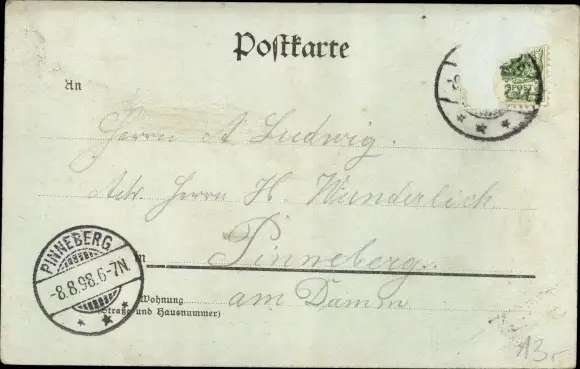 Postkarte
An
Herrn A Ludwig.
Adr. Herrn H. Wunderlich
in Pinneberg.
am Damm
Wohnung
(Straße und Hausnummer)
PINNEBERG
-8.8.98.6-7N.
POST
A3-